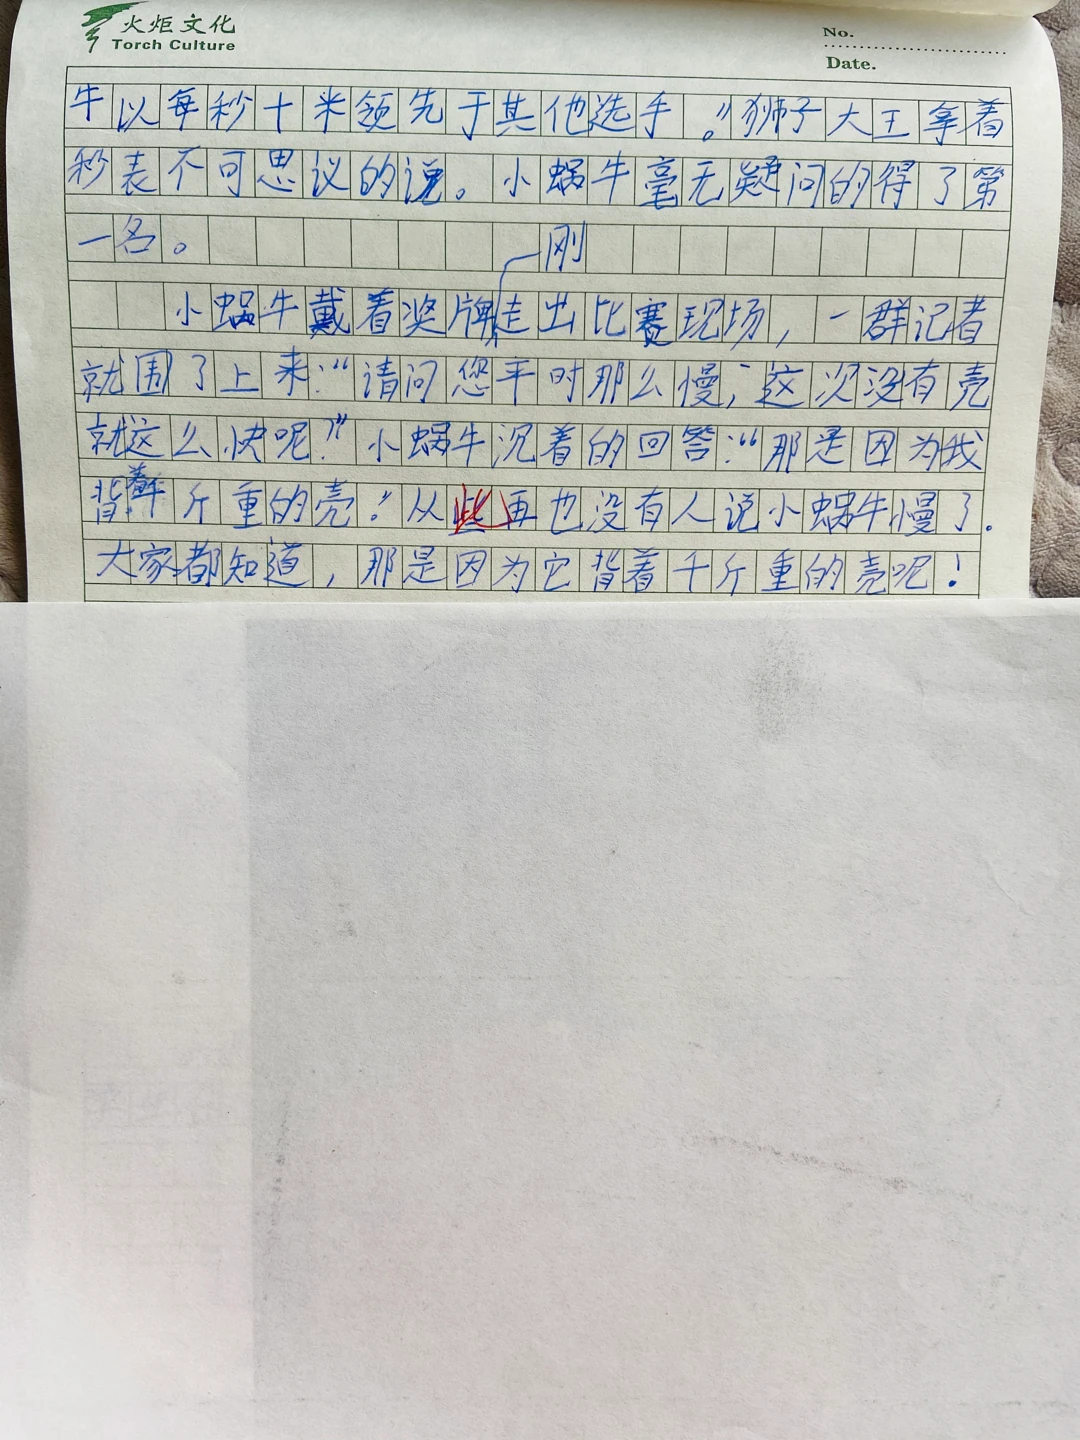 火炬文化
Torch Culture
No.
Date.
牛以每秒十米领先于其他选手。”狮子大王拿着
秒表不可思议的说。小蜗牛毫无疑问的得了第
一名。
刚
小蜗牛戴着奖牌走出比赛现场,一群记者
就围了上来:“请问您平时那么慢,这次没有壳
就这么快呢?”小蜗牛沉着的回答:“那是因为我
背着千斤重的壳。”从此再也没有人说小蜗牛慢了.
大家都知道,那是因为它背着千斤重的壳呢!